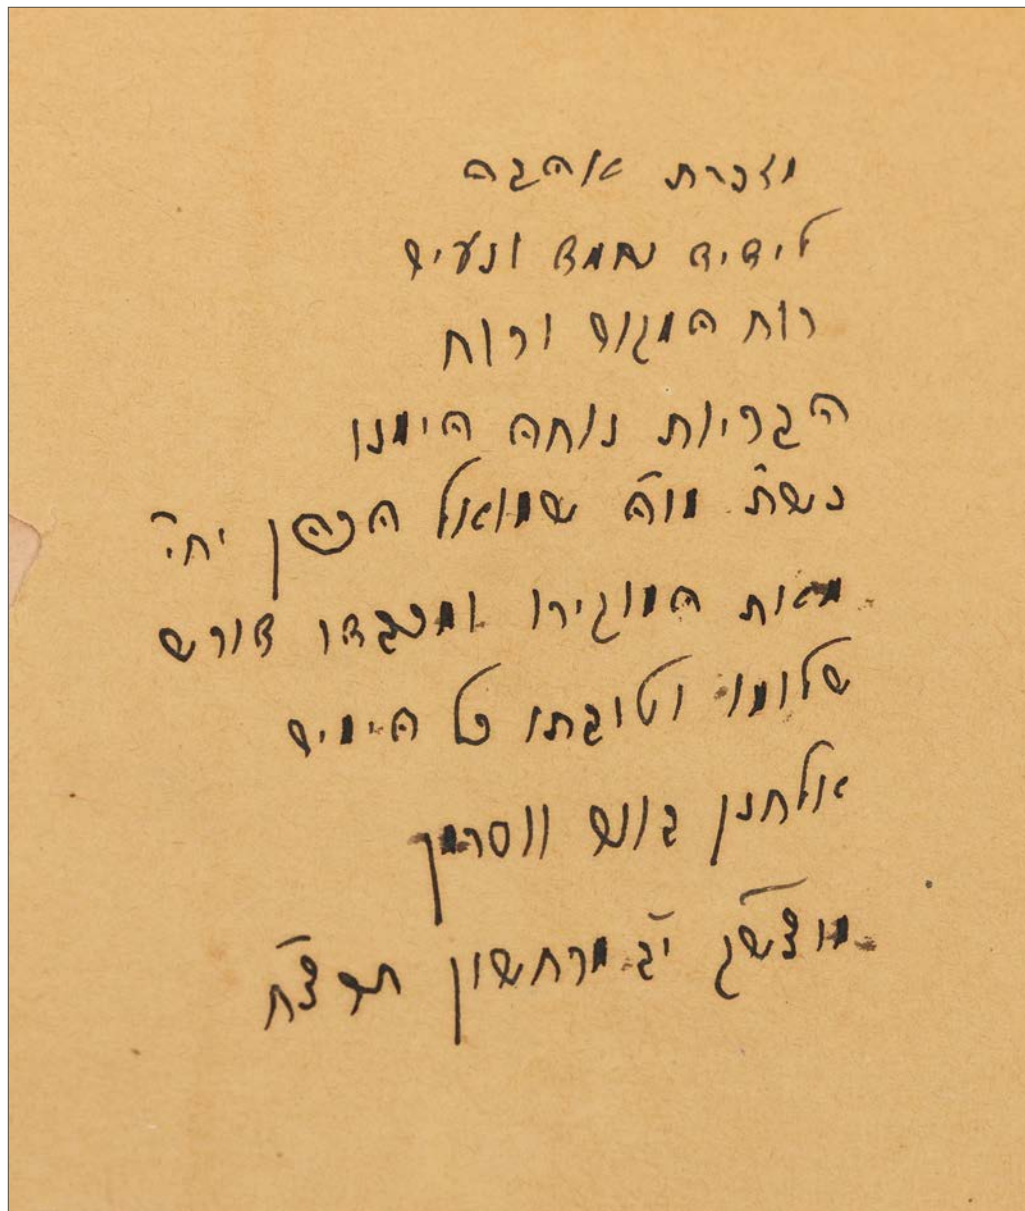 מזכרת אהבה
לידיד נחמד ונעים
רוח המקום ורוח
הבריות נוחה הימנו
כש״ת מו״ה שמואל הכהן יחי׳
מאת המוקירו ומכבדו דורש
שלומו וטובתו כל הימים
אלחנן בונם ווסרמן
מוצש״ק י״ג מרחשון תרצ״ח